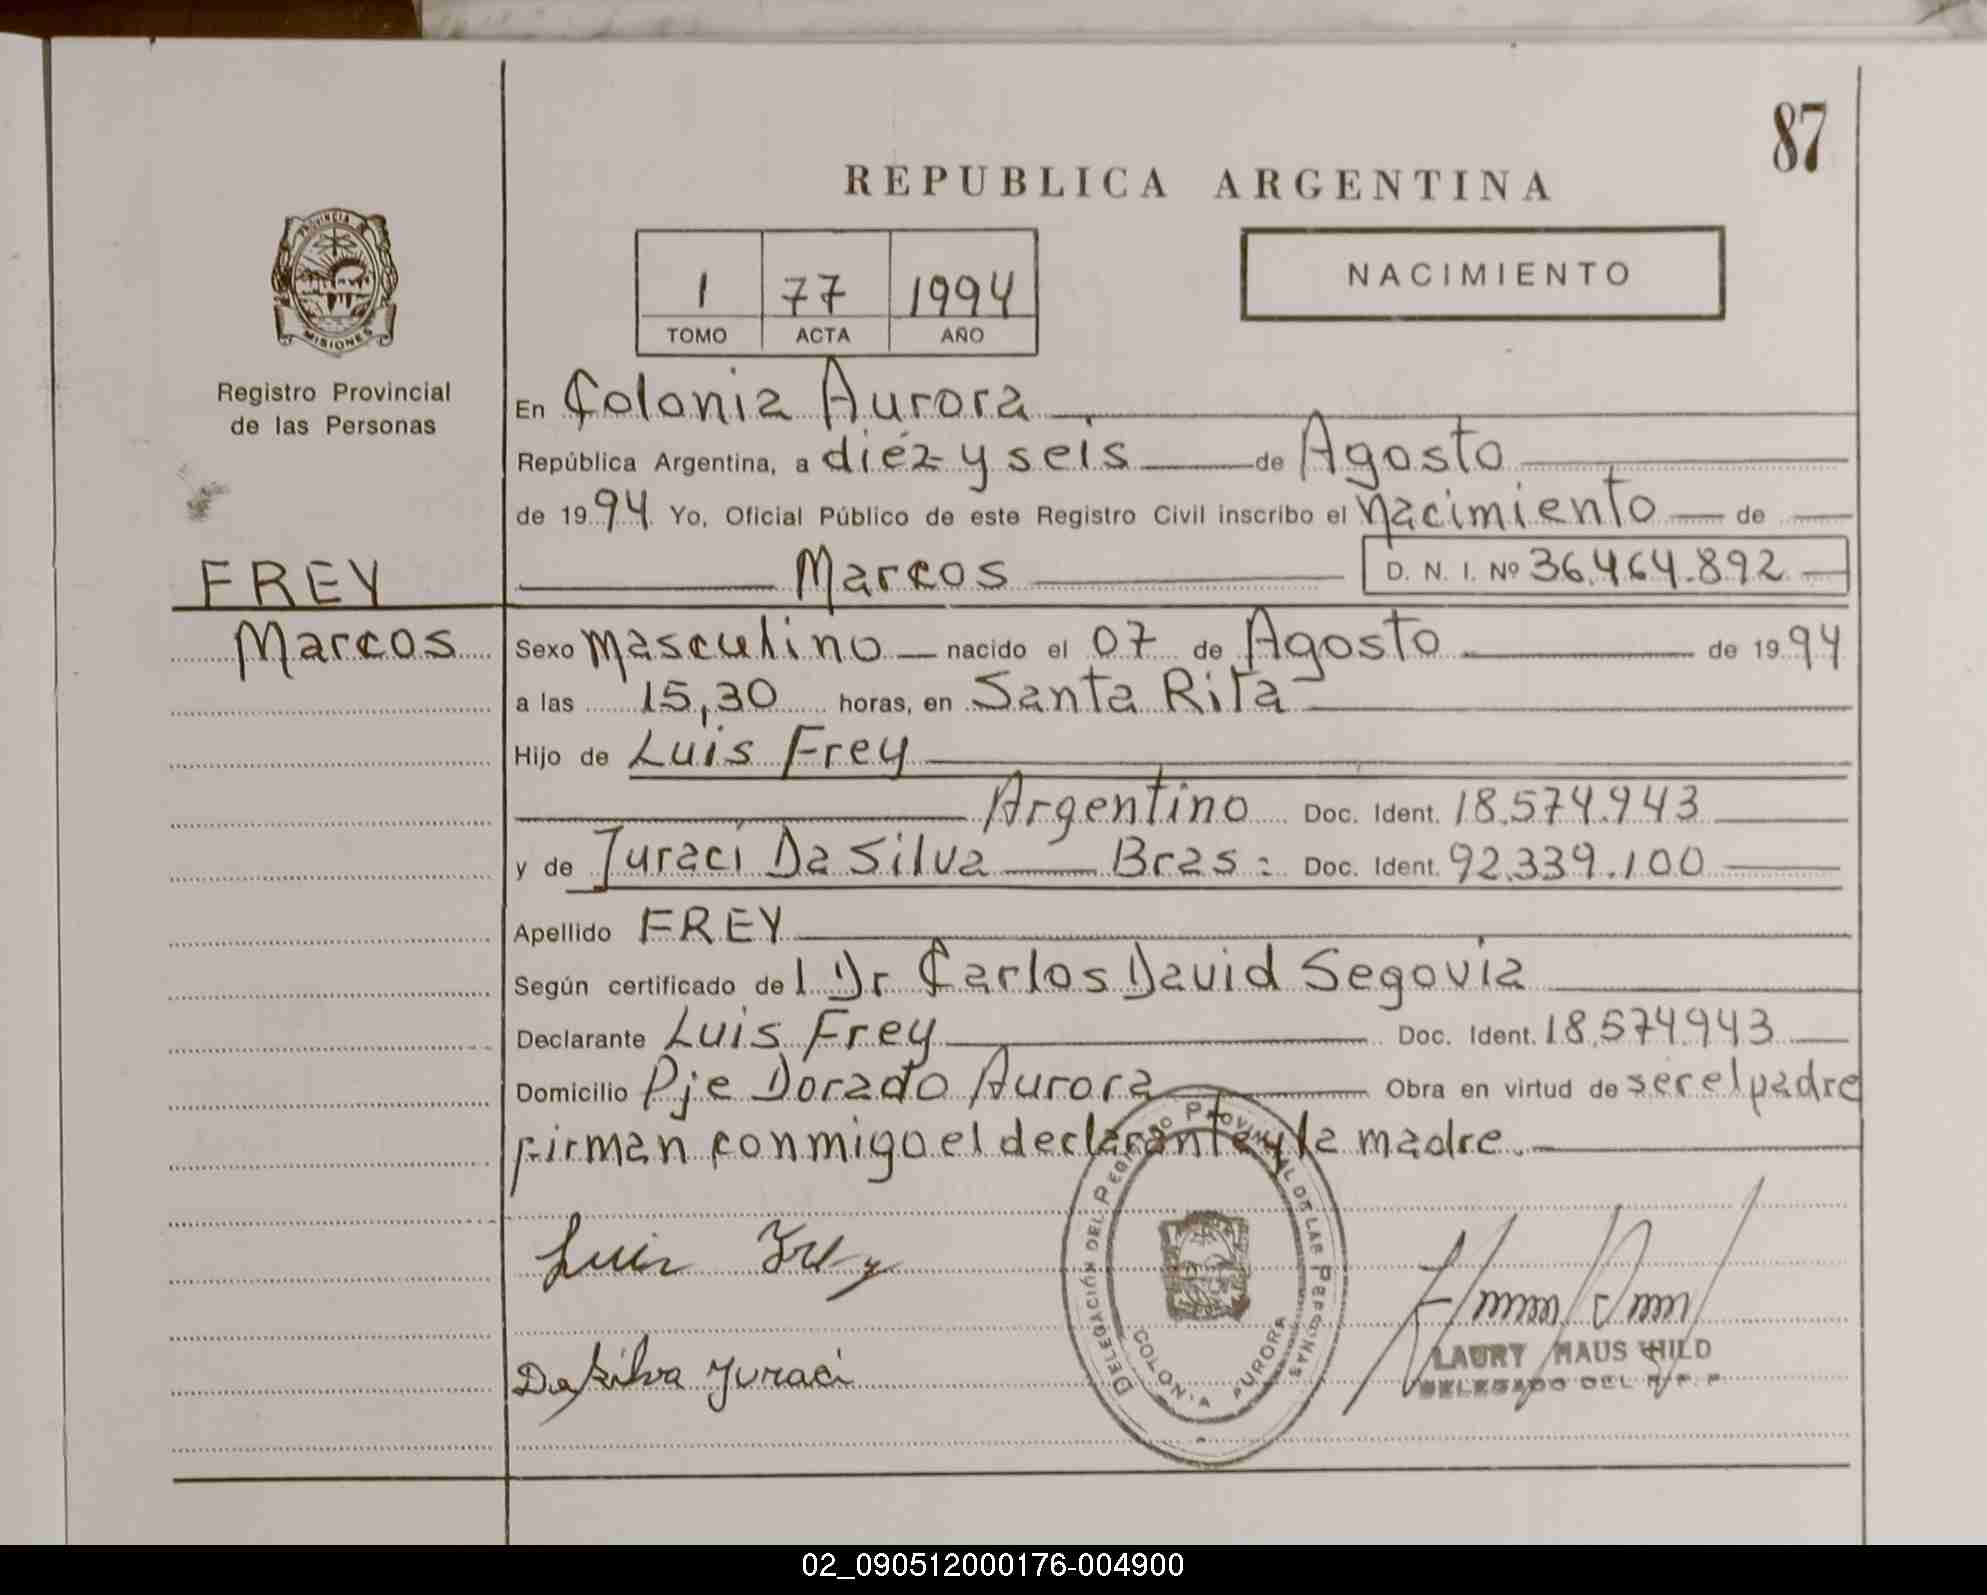 87
REPUBLICA ARGENTINA
PROVINCIA
MISIONES
Registro Provincial
de las Personas
1 77 1994
TOMO ACTA AÑO
NACIMIENTO
En Colonia Aurora
República Argentina, a diéz y seis de Agosto
de 1994 Yo, Oficial Público de este Registro Civil inscribo el Nacimiento de
FREY
Marcos D. N. I. Nº 36.464.892
Marcos
Sexo Masculino nacido el 07 de Agosto de 1994
a las 15,30 horas, en Santa Rita
Hijo de Luis Frey
Argentino Doc. Ident. 18.574.943
y de Juraci Da Silva Bras: Doc. Ident. 92.339.100
Apellido FREY
Según certificado del Dr Carlos David Segovia
Declarante Luis Frey Doc. Ident. 18.574.943
Domicilio Pje Dorado Aurora Obra en virtud de ser el padre
Firman conmigo el declarante y la madre.
Luis Frey
Da Silva Juraci
DELEGACIÓN DEL REGISTRO PROVINCIAL DE LAS PERSONAS
COLONIA AURORA
LAURY HAUS WILD
DELEGADO DEL R.P.P
02_090512000176-004900